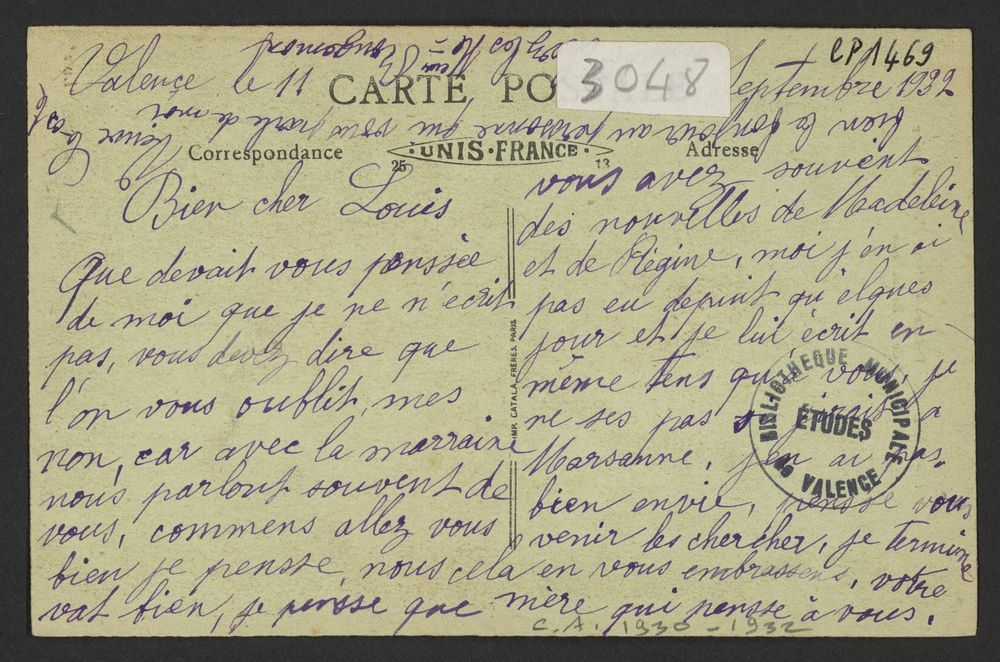 CP1469
3048
Valence le 11 Septembre 1932
CARTE PO
Correspondance
UNIS-FRANCE
25
13
Adresse
Bien cher Louis
Que devait vous penssée
de moi que je ne n'écrit
pas, vous devez dire que
l'on vous oublit, mes
non, car avec la marraine
nous parlont souvent de
vous, commens allez vous
bien je pensse, nous cela
vat bien, je pensse que
vous avez souvent
des nouvelles de Madeleine
et de Régine, moi j'en ai
pas eu depuit qu'elques
jour et je lui écrit en
même tens qu'à vous, je
ne ses pas si j'irais a
Marsanne, j'en ai pas
bien envie, pensse vous
venir les chercher, je termine
en vous embrassens, votre
mère qui pensse à vous.
IMP. CATALA FRERES, PARIS
BIBLIOTHEQUE MUNICIPALE
ÉTUDES
de VALENCE
C.A. 1930-1932